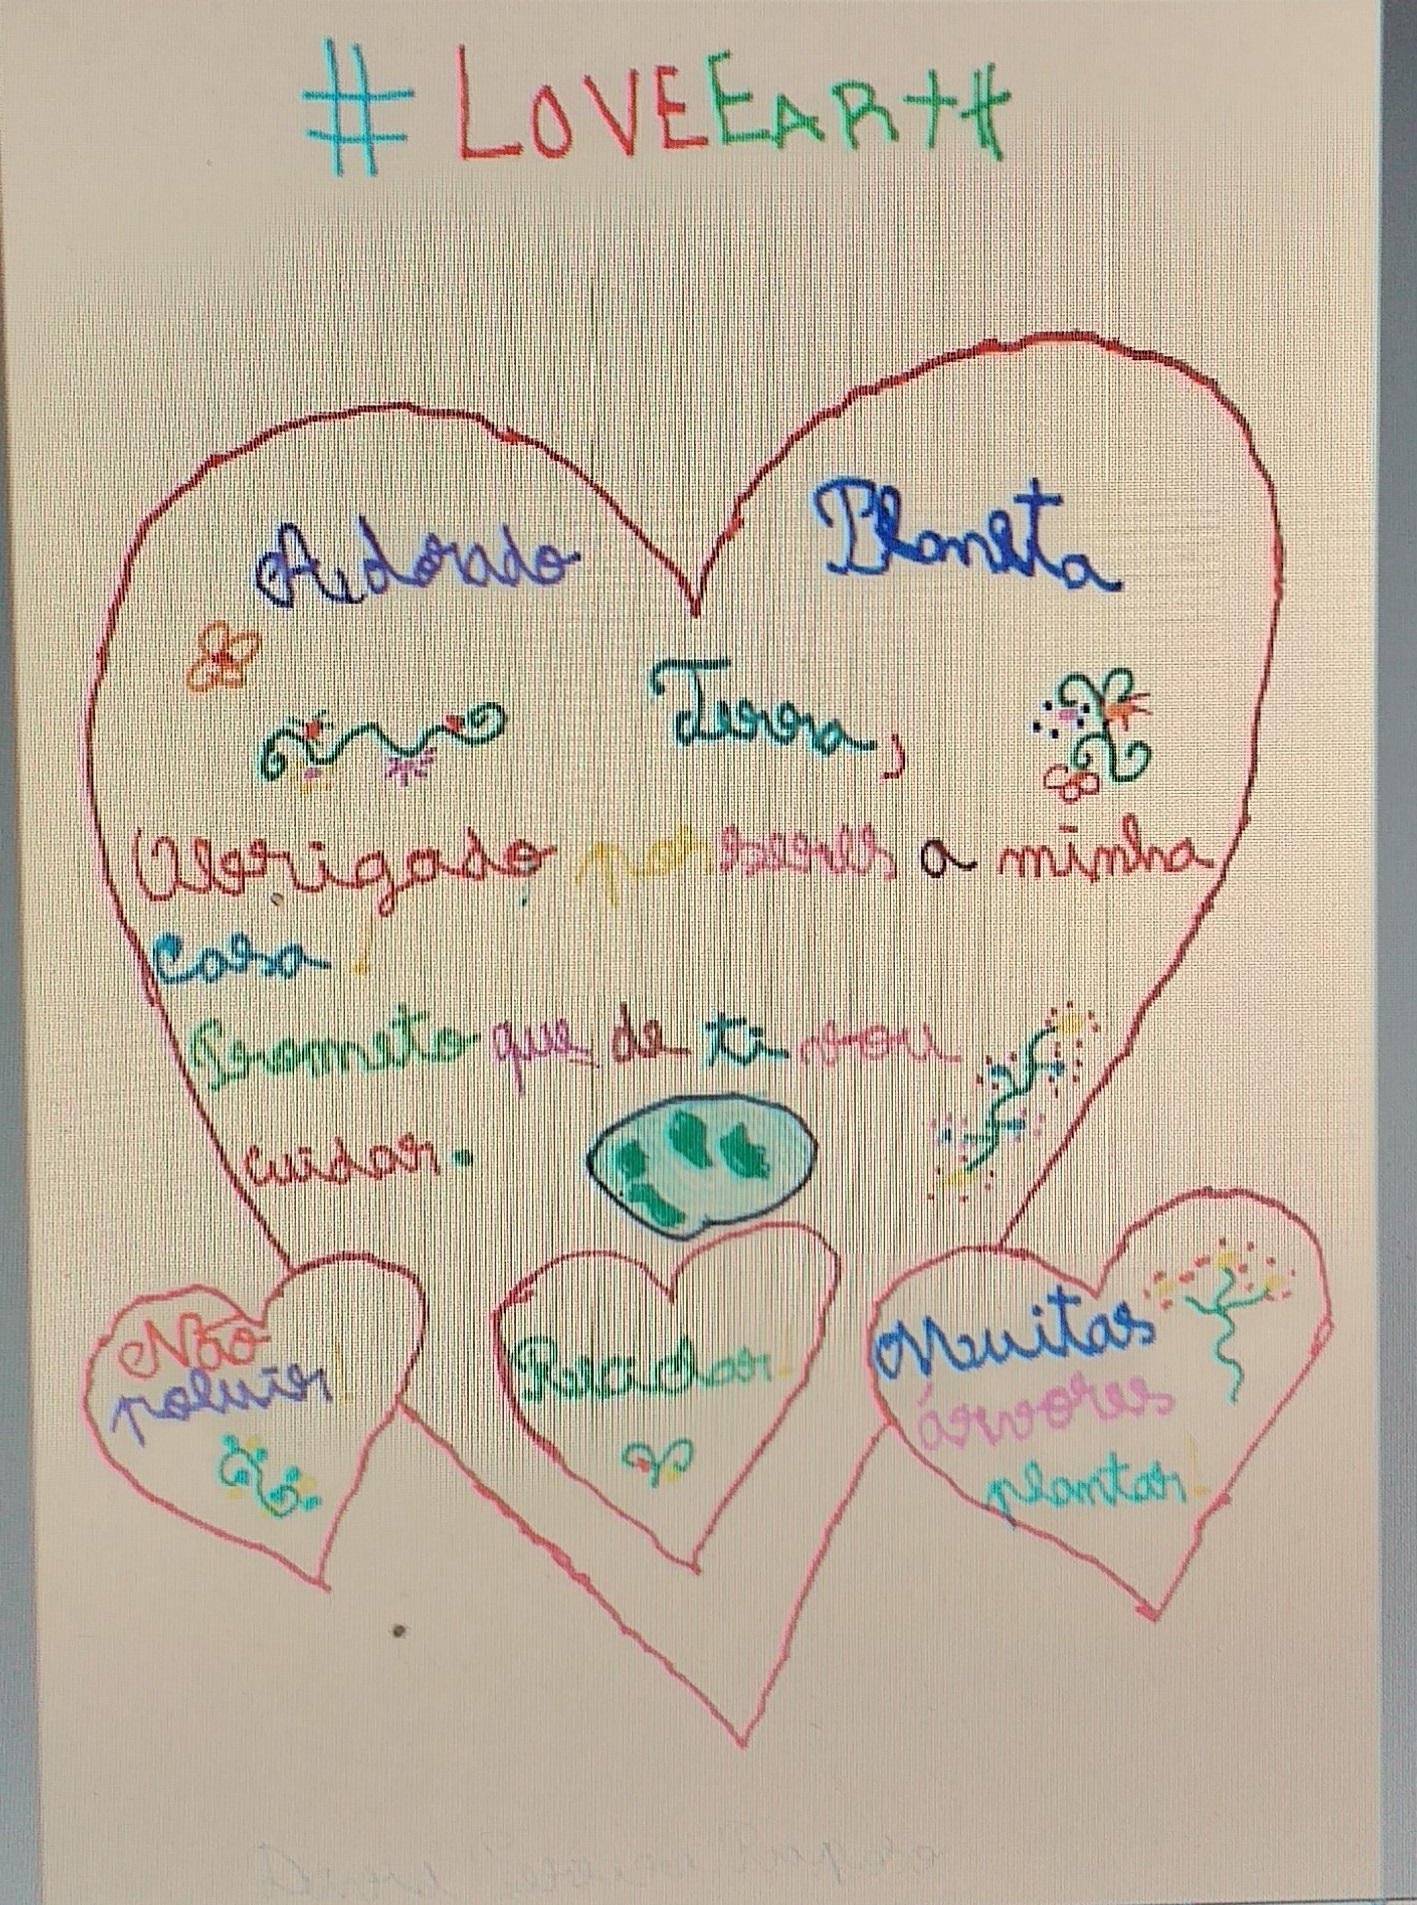 #LOVEEARTH
Adorado Planeta
Terra,
Obrigado por seres a minha
casa!
Prometo que de ti vou
cuidar.
Não
poluir!
Reciclar
Muitas
árvores
plantar!